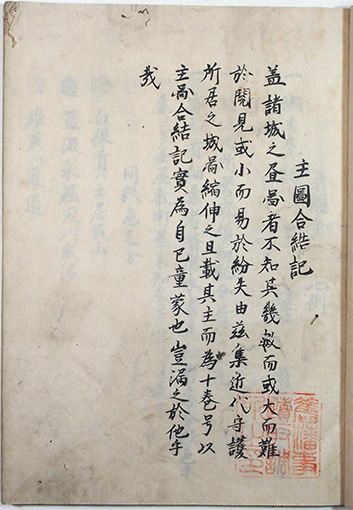 主圖合結記
盖諸城之昼啚者不知其幾拟而或大而難
於閲見或小而易於紛失由茲集近代守護
所居之城啚縮伸之且載其主而為十巻号以
主啚合結記實為自已童蒙也豈漏之於他乎
哉